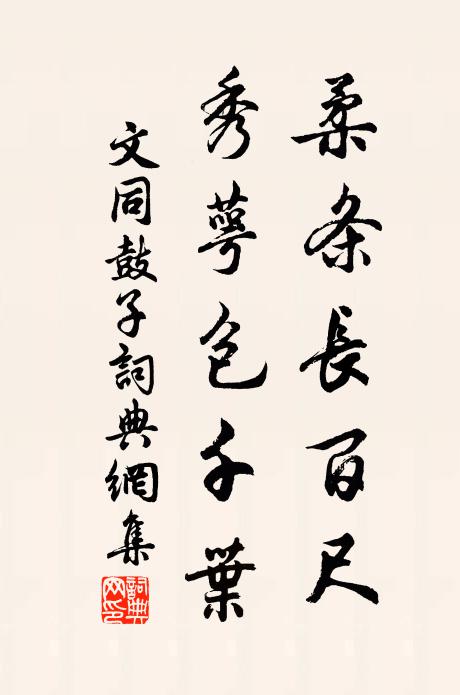 柔条長百尺
秀萼包千葉
文同鼓子詞典網集
詞典网印